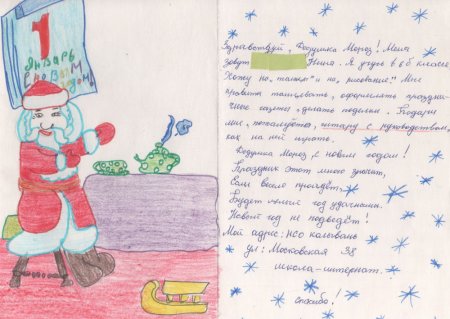 1
Январь
С новым
годом!
Здравствуй, Дедушка Мороз! Меня
зовут Нина. Я учусь в 6 б классе
Хожу на „танцы" и на „рисование." Мне
нравится танцевать, оформлять празднич-
ные газеты, делать поделки. Подари
мне, пожалуйста, гитару с руководством,
как на ней играть.
Дедушка Мороз, с новым годом!
Праздник этот много значит,
Если весело пройдёт,
Будет целый год удачным.
Новый год не подведёт!
Мой адрес: НСО Колывань
ул: Московская 38
школа-интернат.
Спасибо!